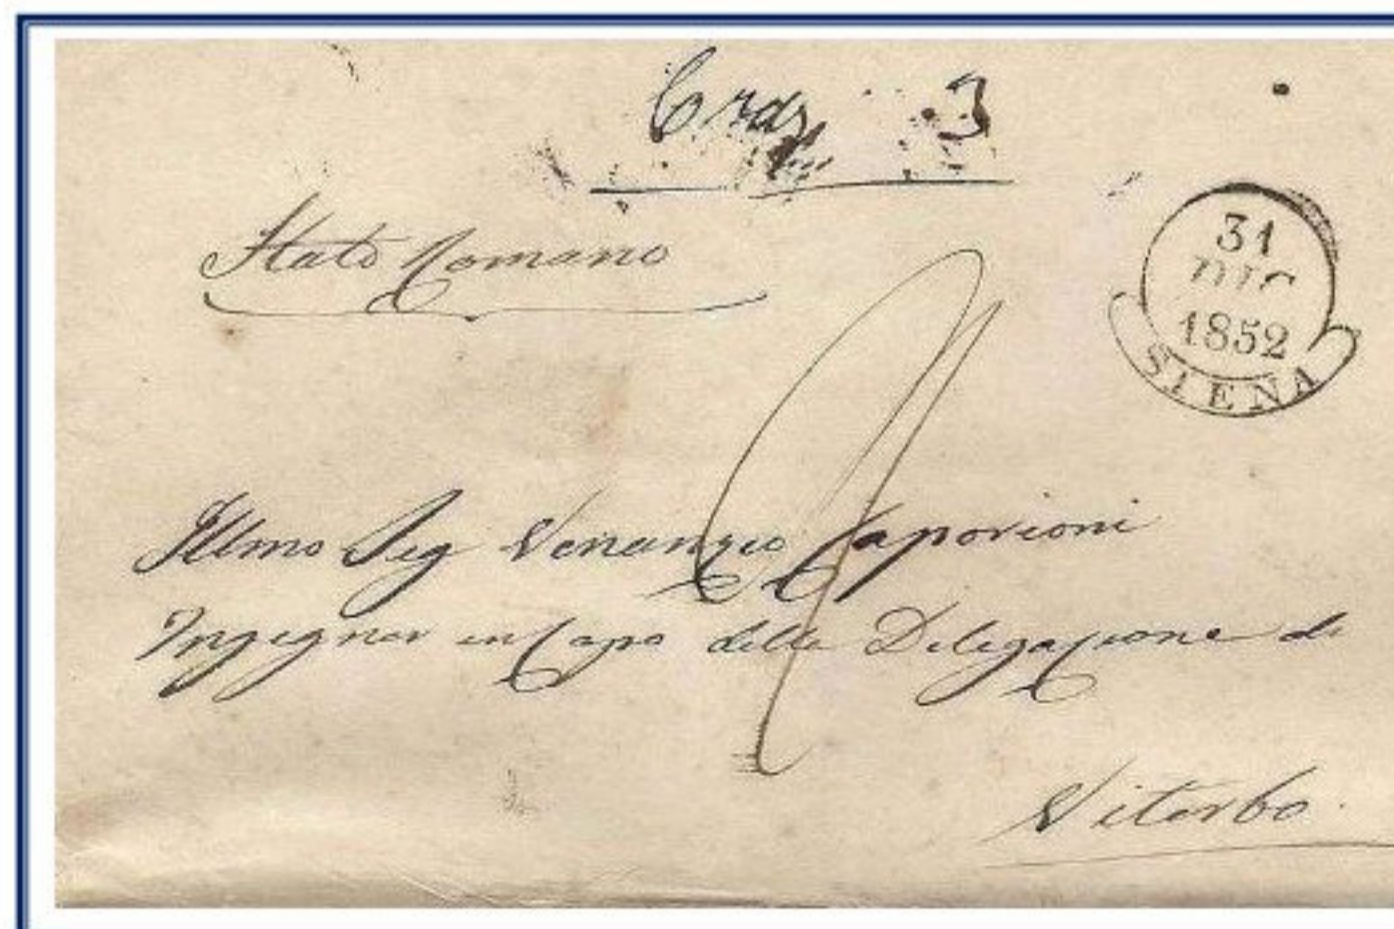 3
Stato Romano
31
DIC
1852
SIENA
Illmo Sig Venanzio Caporioni
Ingegner in Capo della Delegazione di
Viterbo.